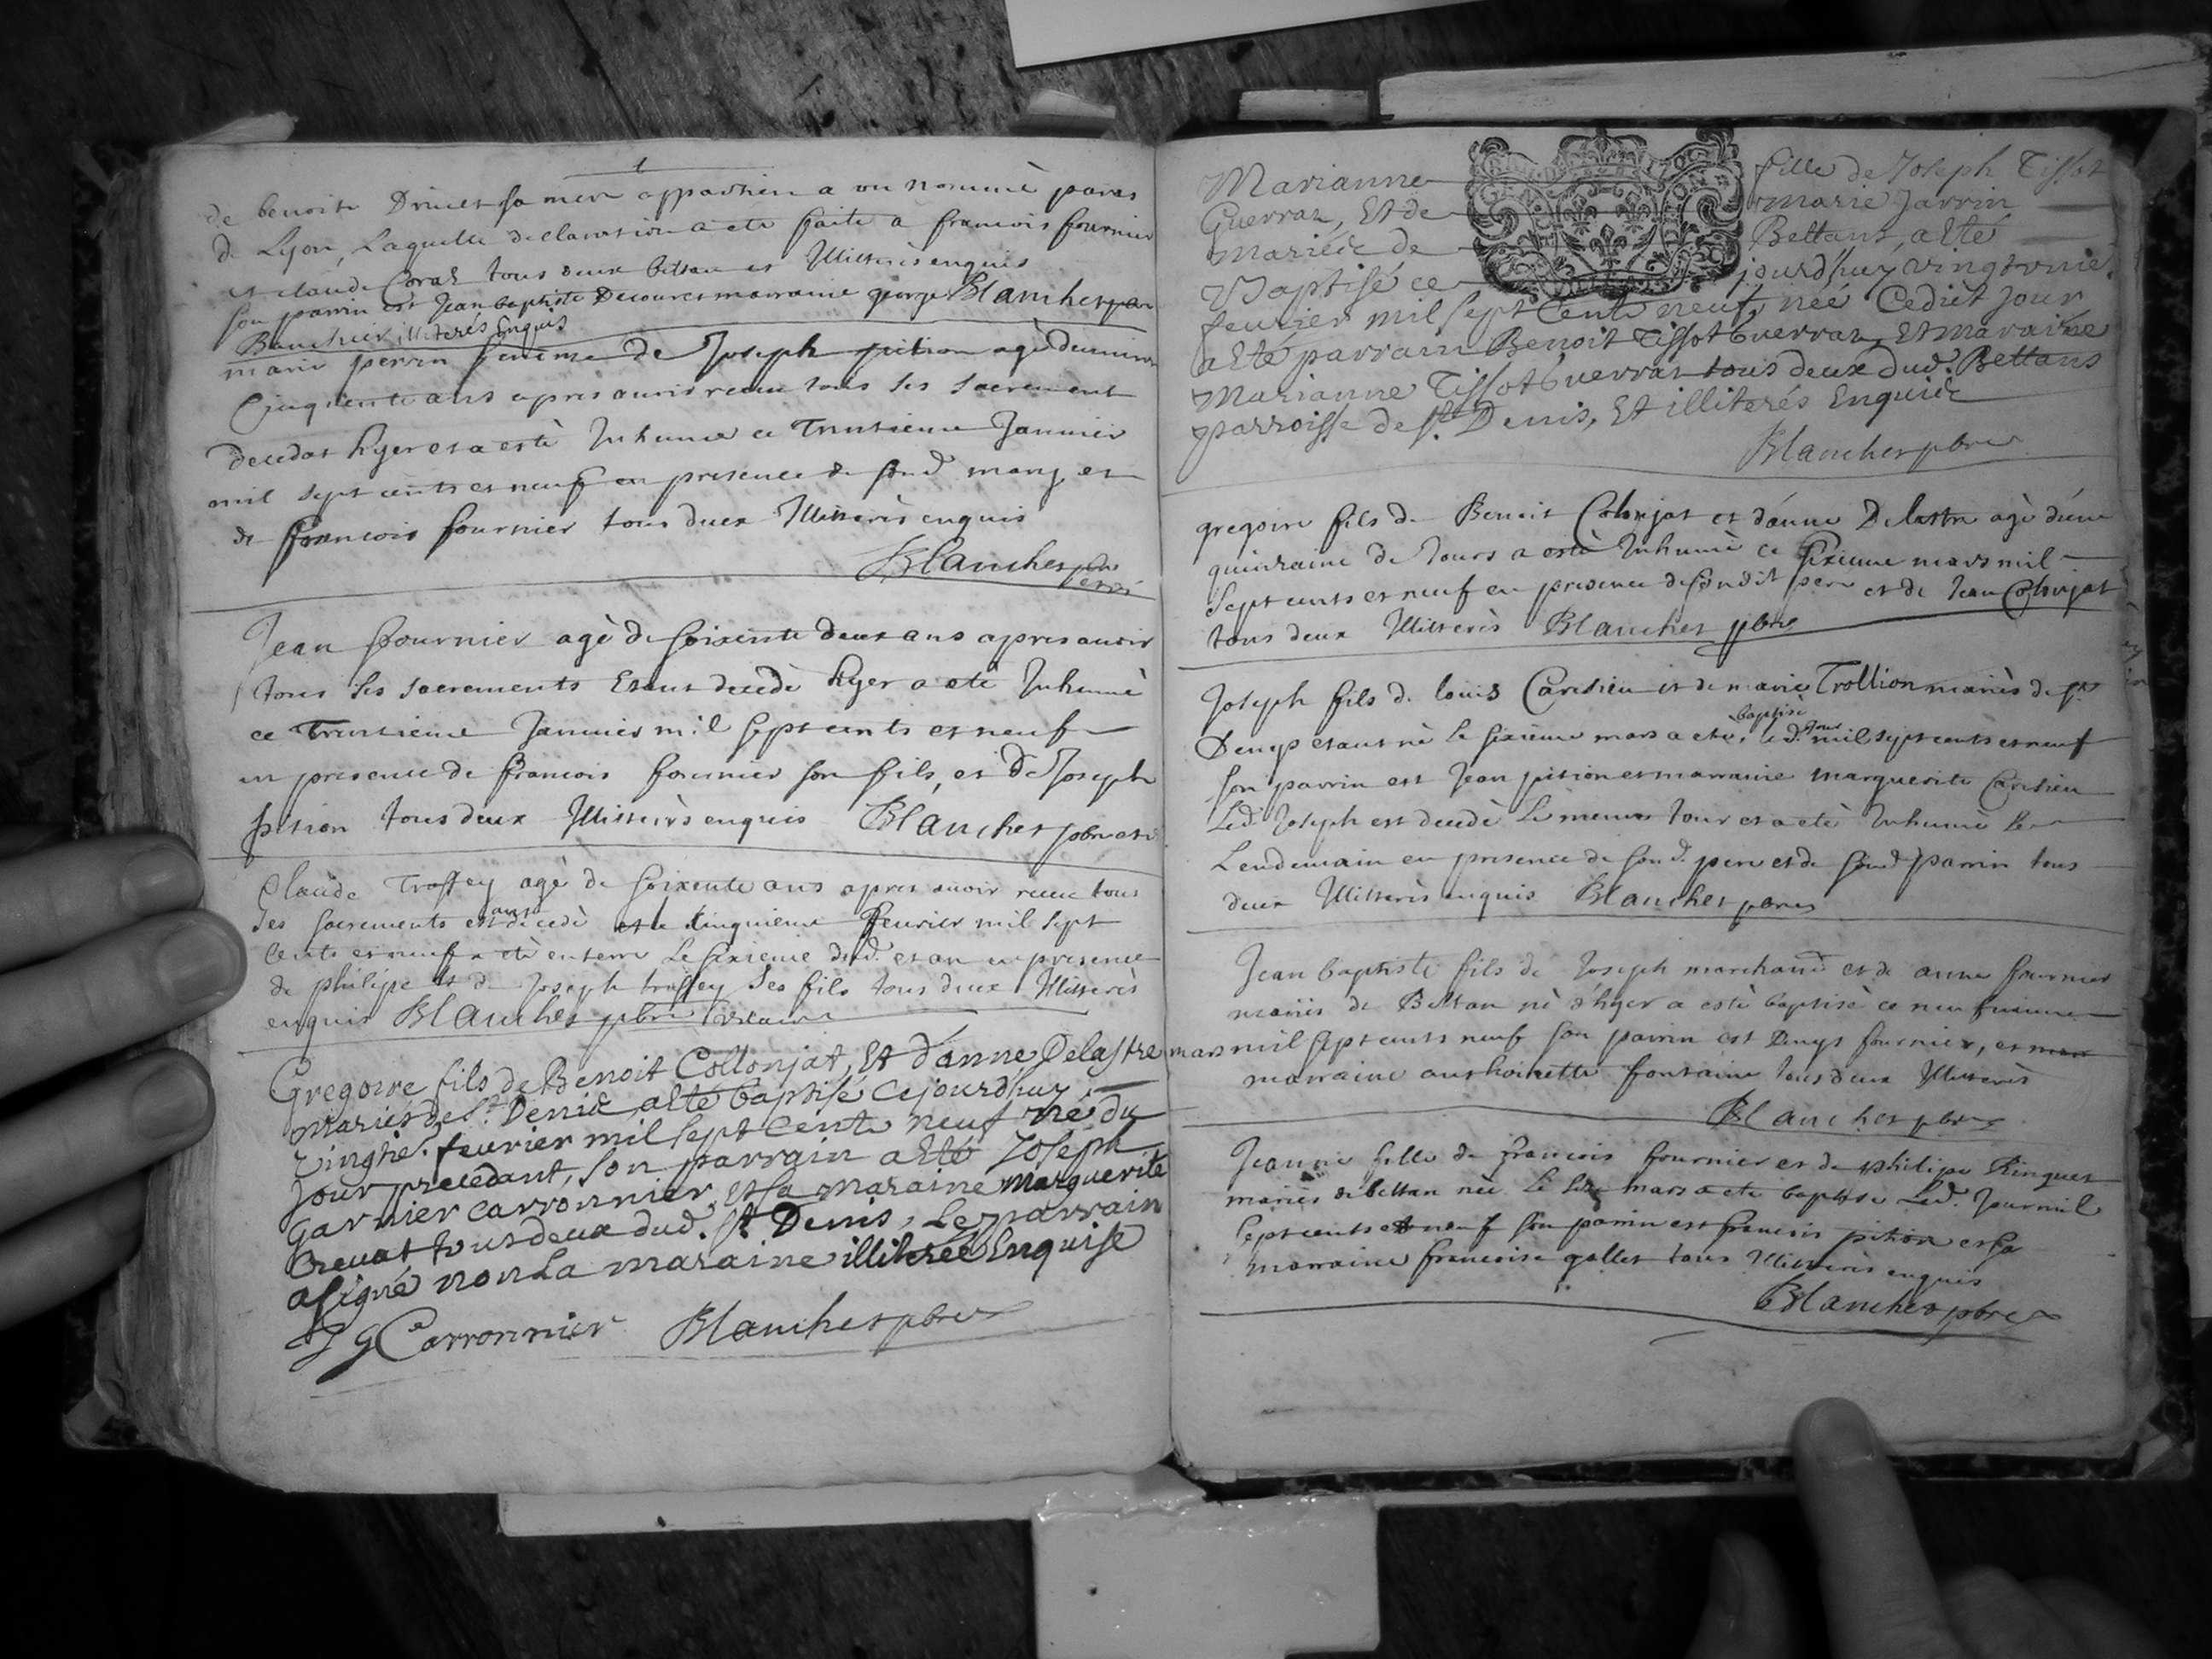 de benoite Driuet sa mere appartien a un nommè paris
de Lyon, Laquelle declaration a ete faite a francois fournier
et claude Coral tous deux bettan et Illitterès enquis
son parrin est Jean baptiste Decour et marraine george Blanchet pbre
Bouchier illiterés Enquis
marie perrin femme de Joseph pition agè denuiron
Cinquente ans apres auoir receu tous ses sacrement
decedat hyer et a estè Inhumè ce Trentieme Januier
mil sept cents et neuf en presence de son d. mary et
de francois fournier tous deux Illitterès enquis
Blanchet pbre
Jean fournier agè de soixente deux ans apres auoir
tous ses sacrements Estant decedè hyer a etè Inhumè
ce Trentieme Januier mil sept cents et neuf
en presence de francois fournier son fils, et de Joseph
pition tous deux Illitterès enquis Blanchet pbre
Claude Troffey agè de soixente ans apres auoir receu tous
ses sacrements estant decedè le cinquieme feurier mil sept
cents et neuf a etè enterrè Le sixieme dud. et an en presence
de philipe et de Joseph troffey ses fils tous deux Illitterès
enquis Blanchet pbre vicaire
Gregoire fils de Benoit Collonjat, Et d'anne Delastre
mariés de St. Denis, a Eté baptisé Cejourd'huy
vingtie. feurier mil sept Cents neuf né du
Jour precedant, son parrain a Eté Joseph
Garnier carronnier, Et sa maraine marguerite
Breuat tous deux dud. St. Denis, Le parrain
a signé non La maraine illiterée Enquise
J G Carronnier Blanchet pbre
Marianne fille de Joseph Tissot
Guerraz, Et de marie Jarrin
mariés de Bettans, a Eté
Baptisé ce jourd'huy vingt unie.
feurier mil sept Cents neuf, née Cedict jour
a Eté parrain Benoit Tissot Guerraz, Et maraine
Marianne Tissot Guerraz tous deux dud. Bettans
parroisse de St. Denis, Et illiterés Enquis
Blanchet pbre
gregoire fils de Benoit Colonjat et d'anne Delastre agè d'une
quinzaine de Jours a estè Inhumè ce sixieme mars mil
sept cents et neuf en presence de son dit pere et de Jean Colonjat
tous deux Illitterès Blanchet pbre
Joseph fils de louis Caredieu et de marie Trollion mariès de St.
Denys etant nè le sixieme mars a ete baptisé led. jour mil sept cents et neuf
son parrin est Jean pition et marraine marguerite Caredieu
Led. Joseph est decedè Le meme Jour et a etè Inhumè le
Lendemain en presence de son d. pere et de son d. parrin tous
deux Illitterès enquis Blanchet pbre
Jean baptiste fils de Joseph marchand et de anne fournier
mariès de Bettan nè d'hyer a estè baptisè ce neufuieme
mars mil sept cents neuf son parrin est Denys fournier, et
marraine anthoinette fontaine tous deux Illitterès
Blanchet pbre
Jeanne fille de francois fournier et de philipe Ringuet
mariès de bettan nèe Le seze mars a etè baptise Led. Jour mil
sept cents et neuf son parrin est francois pition et sa
marraine francoise gallet tous Illitterès enquis
Blanchet pbre